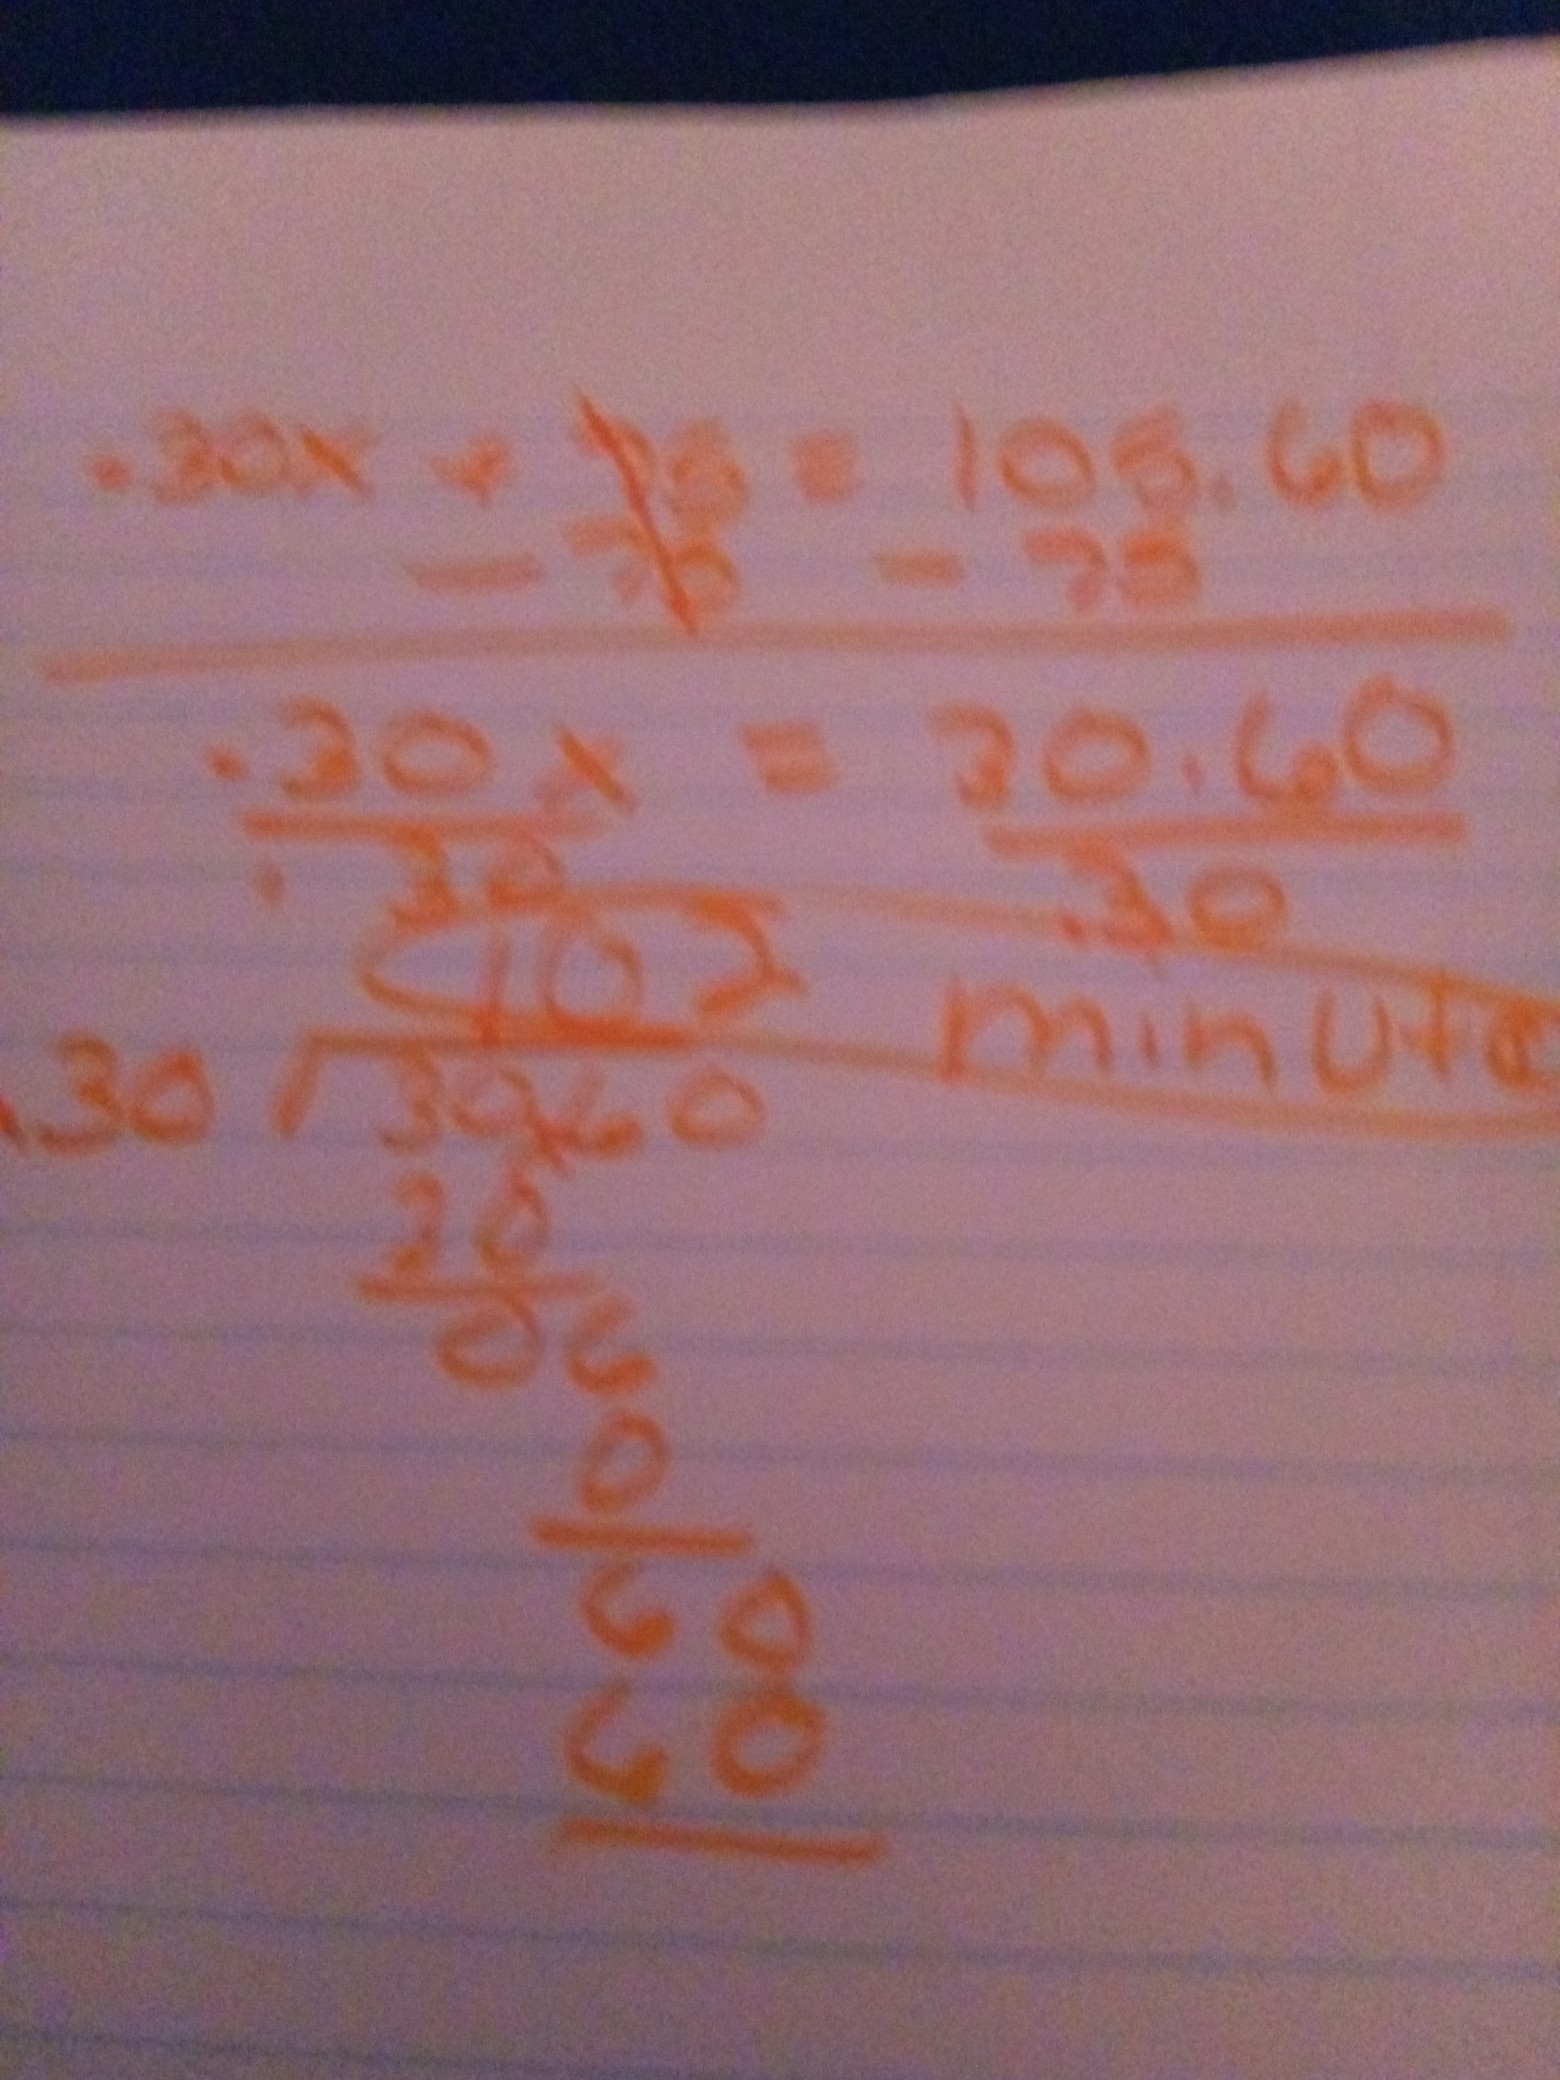 .30x + 75 = 105.60
- 75 - 75
.30x = 30.60
.30 .30
102 minute
.30 3060
30
06
0
60
60